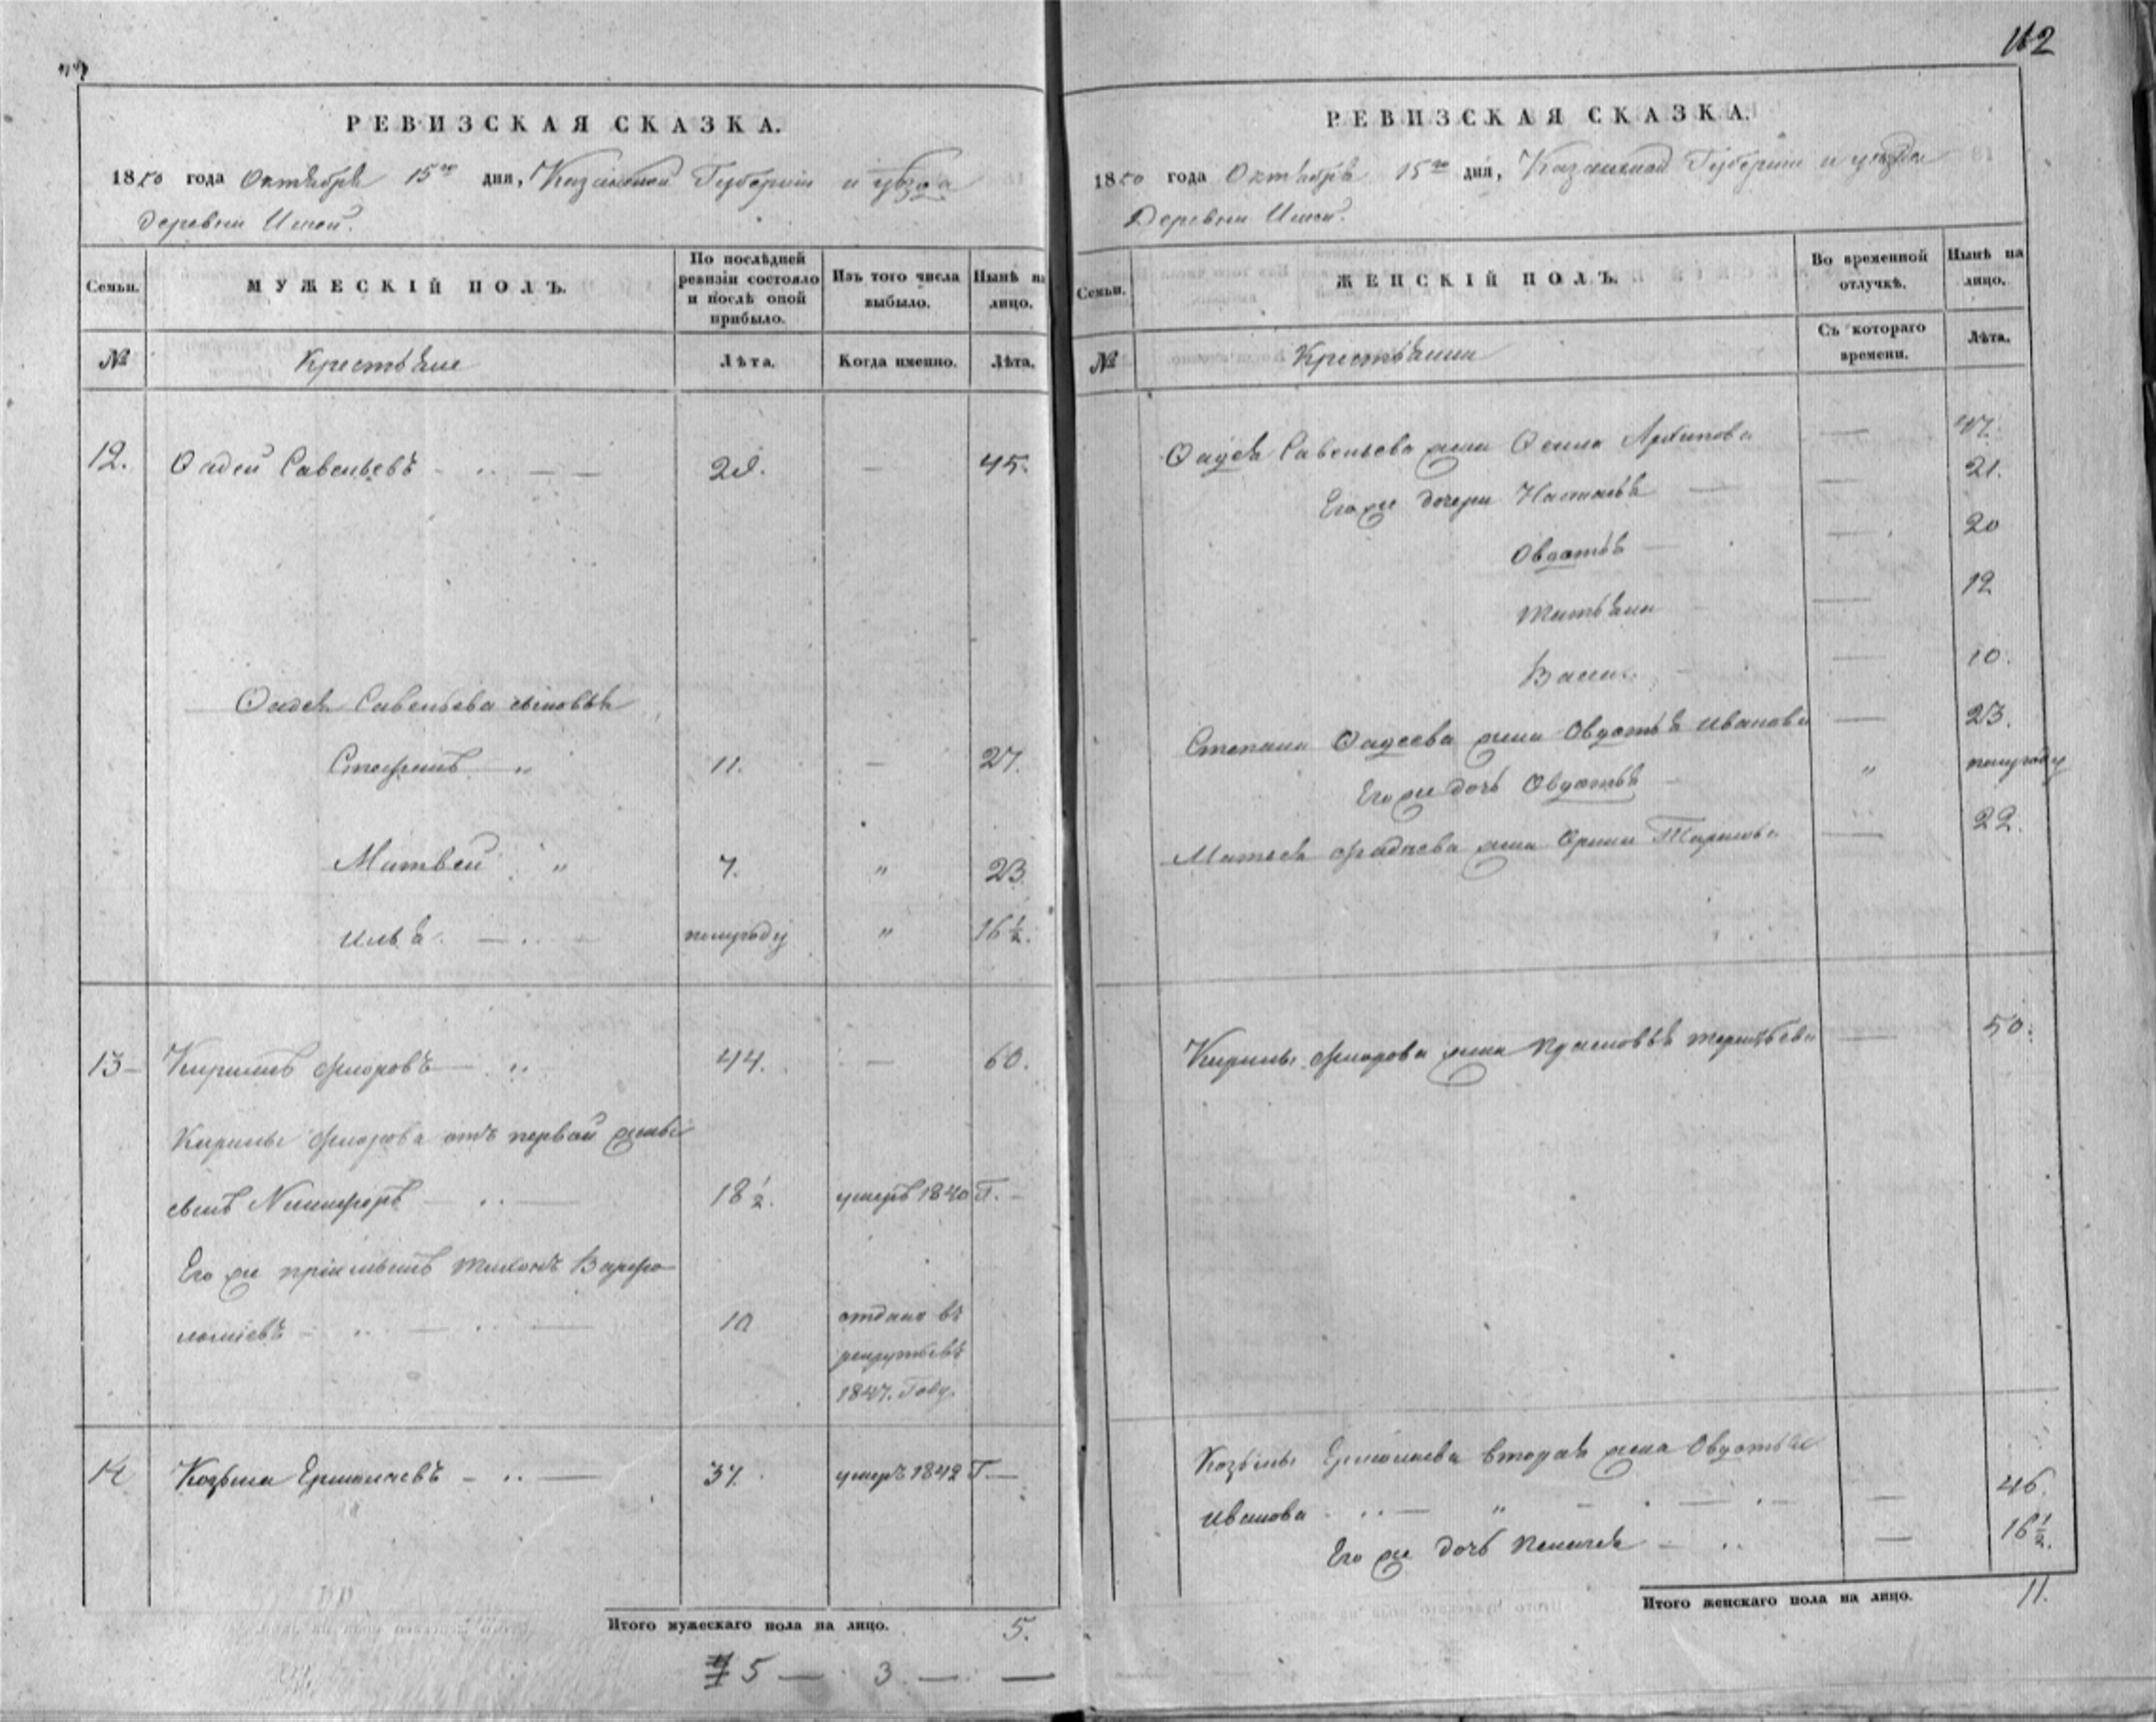 112
РЕВИЗСКАЯ СКАЗКА.
1850 года Октября 15го дня, Казанской Губернии и уѣзда
деревни
Семьи.
МУЖЕСКІЙ ПОЛЪ.
По послѣдней ревизіи состояло и послѣ оной прибыло.
Изъ того числа выбыло.
Нынѣ на лицо.
№
Крестьяне
Лѣта.
Когда именно.
Лѣта.
12. Фадей Савельевъ 29. — 45.
Фадея Савельева сыновья
Стефанъ 11. — 27.
Матвей 7. " 23
Илья полугоду " 16½.
13 Кирилъ Флоровъ 44. — 60.
Кирилы Флорова отъ первой жены
сынъ Никифоръ 18½. умеръ 1840 Г.
Его же пріимышъ Тихонъ Варфо
ломѣевъ 10 отданъ въ
рекруты въ
1847. Году.
14 Козьма Ермолаевъ 37. умеръ 1842 Г.
Итого мужескаго пола на лицо. 5.
5 — 3 — —
РЕВИЗСКАЯ СКАЗКА.
1850 года Октября 15го дня, Казанской Губерніи и уѣзда
Деревни
Семьи.
ЖЕНСКІЙ ПОЛЪ.
Во временной отлучкѣ.
Нынѣ на лицо.
№
Крестьянки
Съ котораго времени.
Лѣта.
Фадея Савельева жена Архипова — 47.
Его же дочери Настасья — 21.
Овдотья — 20
Татьяна — 12
— 10.
Степана Фадеева жена Овдотья Иванова — 23.
Его же дочь Овдотья " полугоду
Матвея Фадѣева жена Орина — 22.
Кирилы Флорова жена Прасковья Терентьева — 50.
Козьмы Ермолаева вторая жена Овдотья
Иванова — 46.
Его же дочь Пелагея — 16½.
Итого женскаго пола на лицо. 11.